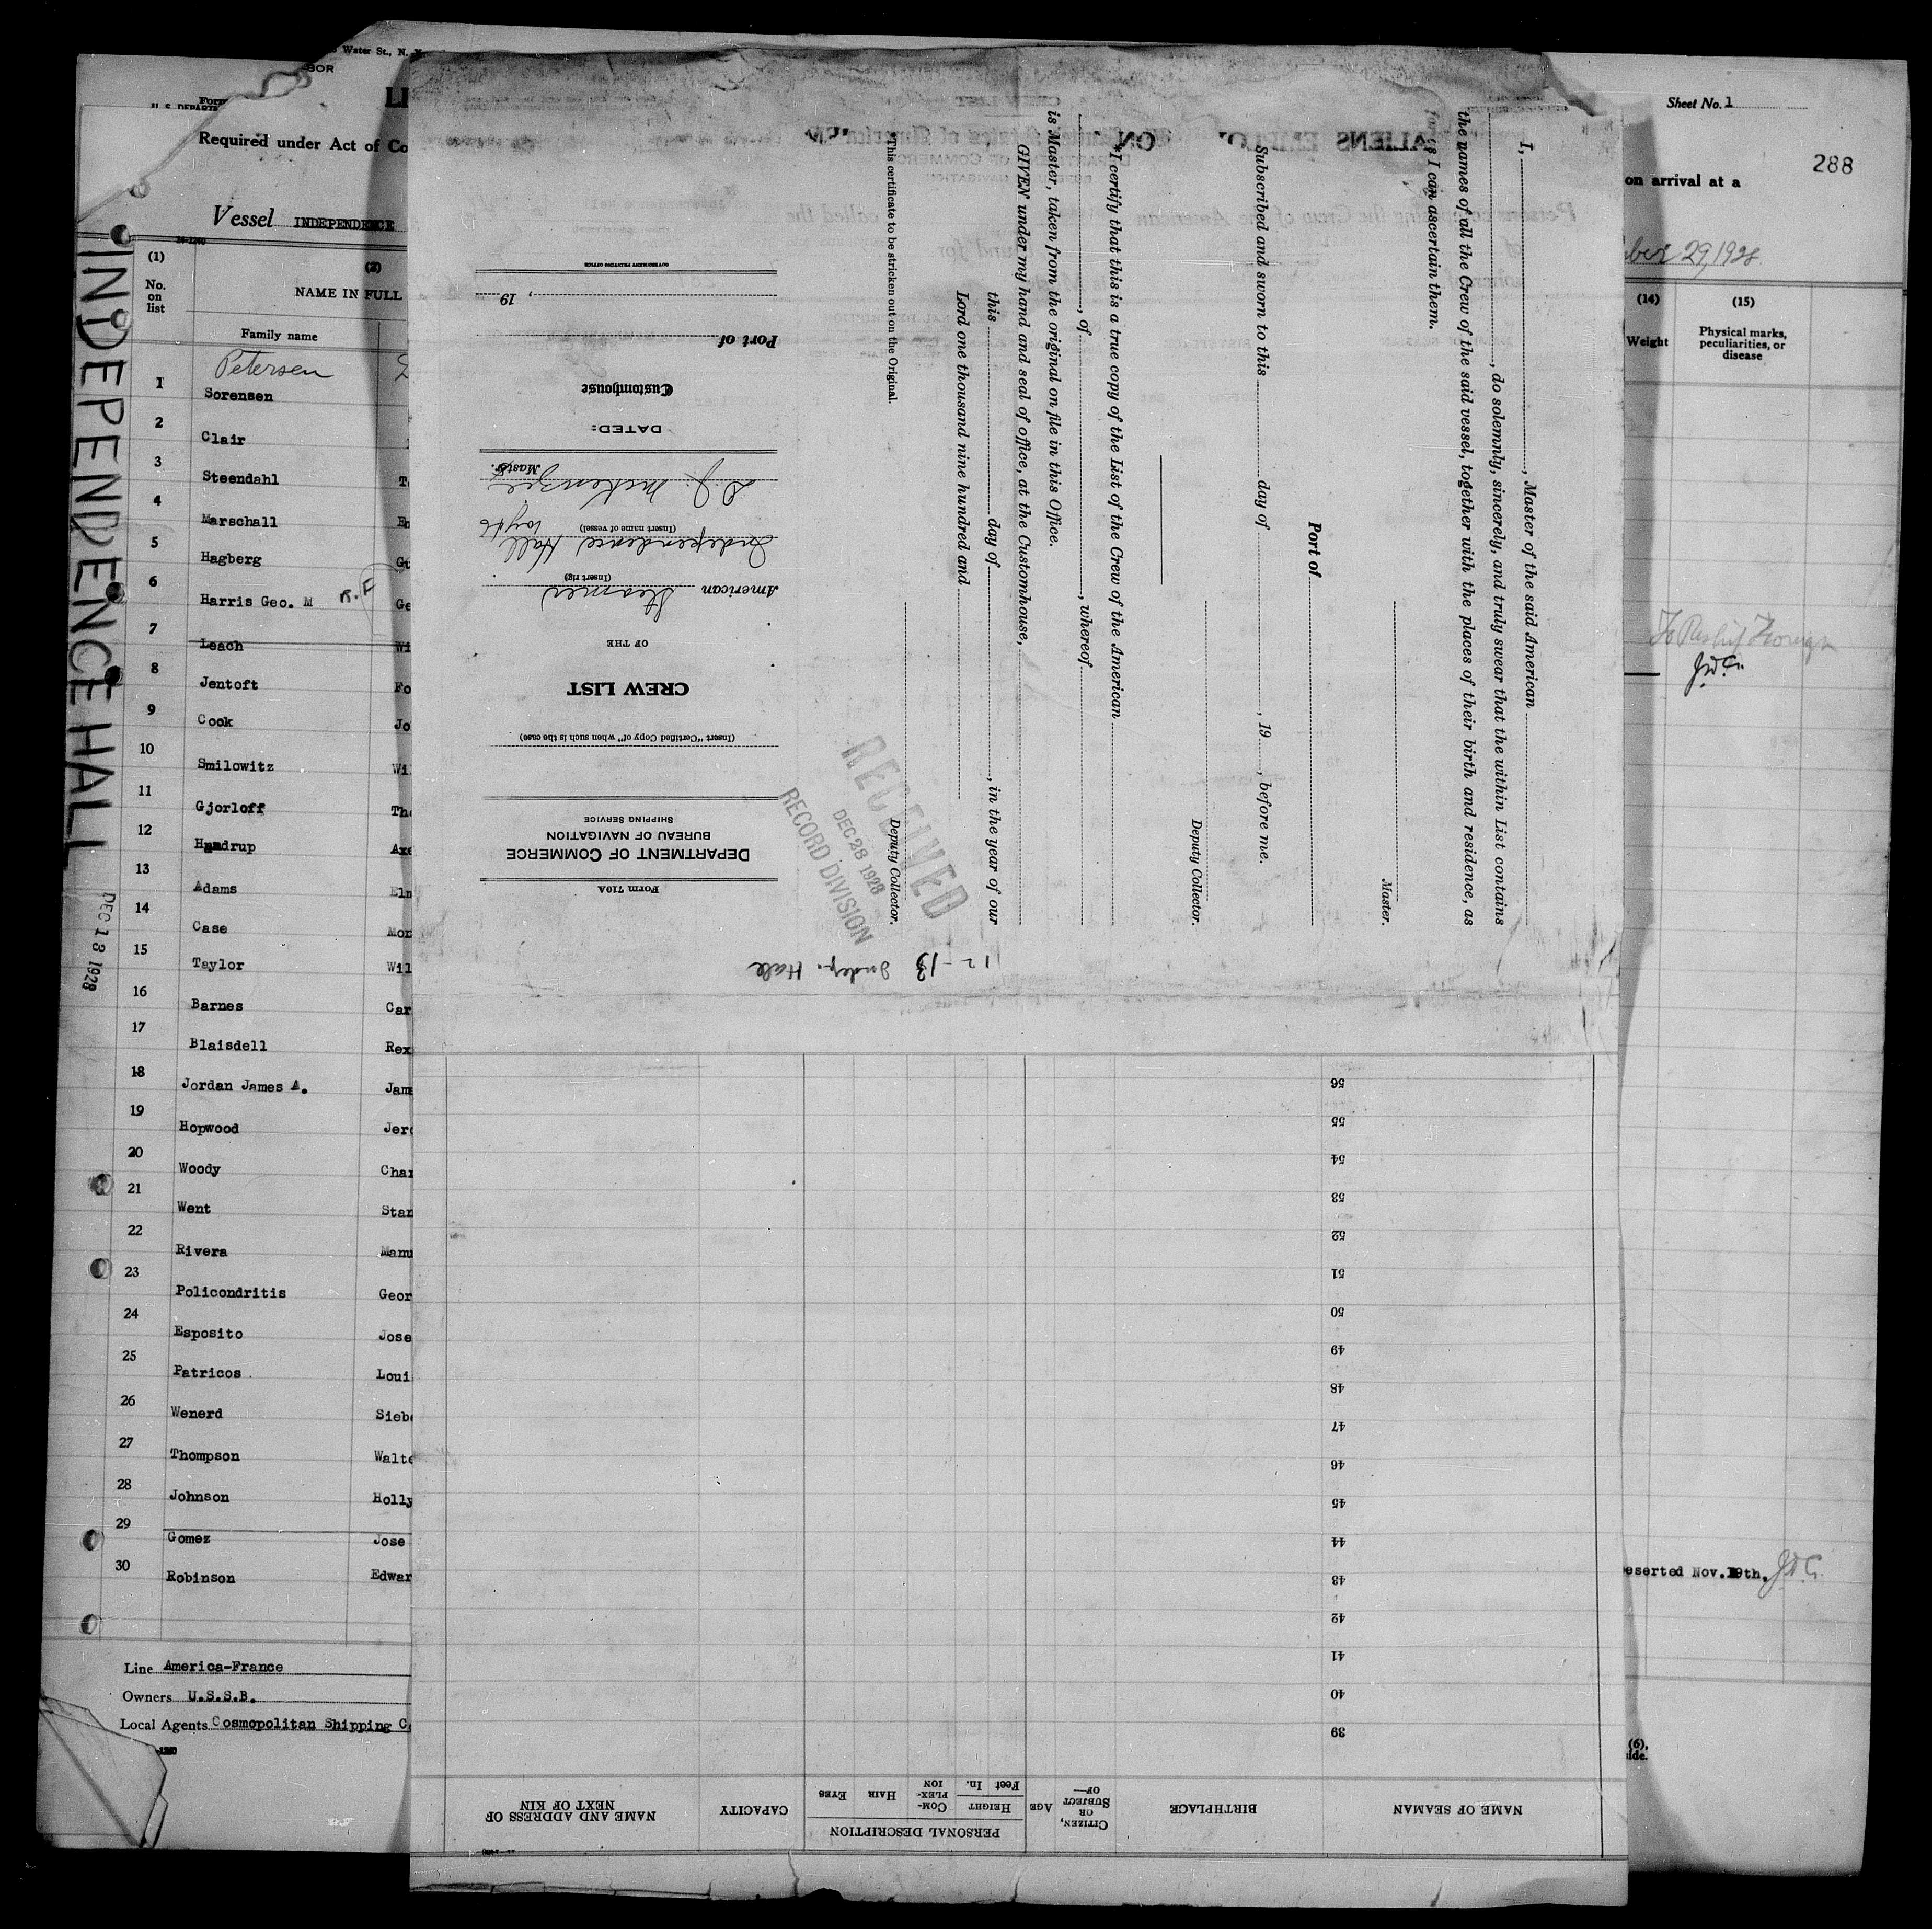 Water St., N. Y.
BOR
Form
U. S. DEPARTM
LI
Required under Act of Co
Vessel INDEPENDENCE
(1)
No.
on
list
(2)
NAME IN FULL
Family name
Petersen
1 Sorensen
2 Clair
3 Steendahl
4 Marschall
5 Hagberg
6 Harris Geo. M
7 Leach Wi
8 Jentoft Fo
9 Cook Jo
10 Smilowitz Wi
11 Gjorloff The
12 Handrup Axe
13 Adams Elm
14 Case Mor
15 Taylor Wil
16 Barnes Car
17 Blaisdell Rex
18 Jordan James A. Jam
19 Hopwood Jero
20 Woody Char
21 Went Stan
22 Rivera Manu
23 Policondritis Geor
24 Esposito Jose
25 Patricos Loui
26 Wenerd Sieb
27 Thompson Walte
28 Johnson Holly
29 Gomez Jose
30 Robinson Edwar
Line America-France
Owners U.S.S.B.
Local Agents Cosmopolitan Shipping Co
INDEPENDENCE HALL
DEC 13 1928
Form 710A
DEPARTMENT OF COMMERCE
BUREAU OF NAVIGATION
SHIPPING SERVICE
(Insert "Certified Copy of" when such is the case)
CREW LIST
OF THE
American Steamer
(Insert rig)
Independence Hall
(Insert name of vessel)
D.J. McKenzie
Master.
DATED:
Customhouse
Port of
, 19
GOVERNMENT PRINTING OFFICE
RECEIVED
DEC 28 1928
RECORD DIVISION
12-13 Indep. Hall
I, , Master of the said American
, do solemnly, sincerely, and truly swear that the within List contains
the names of all the Crew of the said vessel, together with the places of their birth and residence, as
far as I can ascertain them.
Master.
Port of
Subscribed and sworn to this day of , 19 , before me.
Deputy Collector.
*I certify that this is a true copy of the List of the Crew of the American
, of , whereof
is Master, taken from the original on file in this Office.
GIVEN under my hand and seal of office, at the Customhouse,
this day of , in the year of our
Lord one thousand nine hundred and
Deputy Collector.
*This certificate to be stricken out on the Original.
NAME OF SEAMAN
BIRTHPLACE
CITIZEN,
OR
SUBJECT
OF—
AGE
PERSONAL DESCRIPTION
HEIGHT
Feet In.
COM-
PLEX-
ION
HAIR
EYES
CAPACITY
NAME AND ADDRESS OF
NEXT OF KIN
39
40
41
42
43
44
45
46
47
48
49
50
51
52
53
54
55
56
Sheet No. 1
288
on arrival at a
ber 29, 1928
(14)
Weight
(15)
Physical marks,
peculiarities, or
disease
eserted Nov. 19th.
(6),
side.